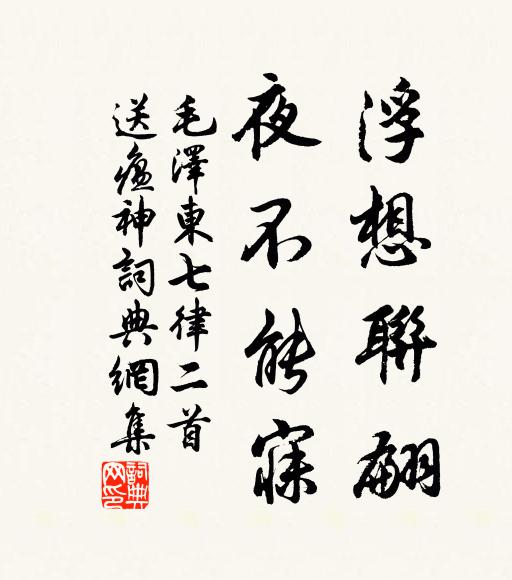 浮想聯翩
夜不能寐
毛澤東七律二首
送瘟神詞典網集
詞典网印